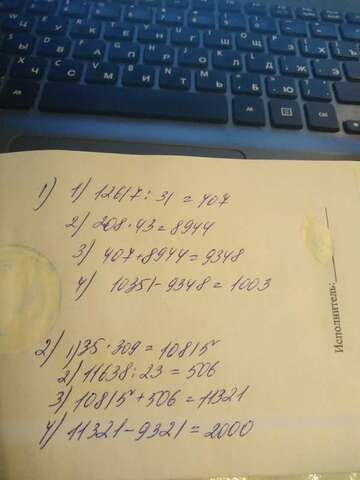 1) 1) 12617 : 31 = 407
2) 208 · 43 = 8944
3) 407 + 8944 = 9348
4) 10351 - 9348 = 1003
2) 1) 35 · 309 = 10815
2) 11638 : 23 = 506
3) 10815 + 506 = 11321
4) 11321 - 9321 = 2000
Исполнитель: